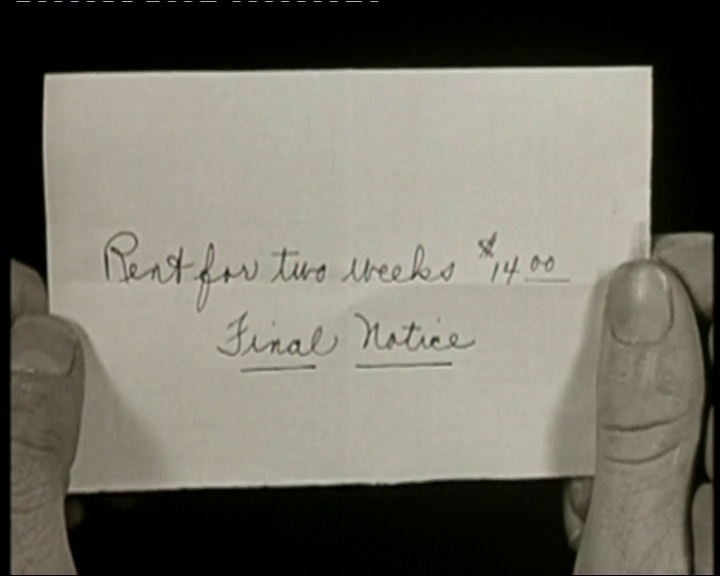 Rent for two weeks $14.00
Final Notice